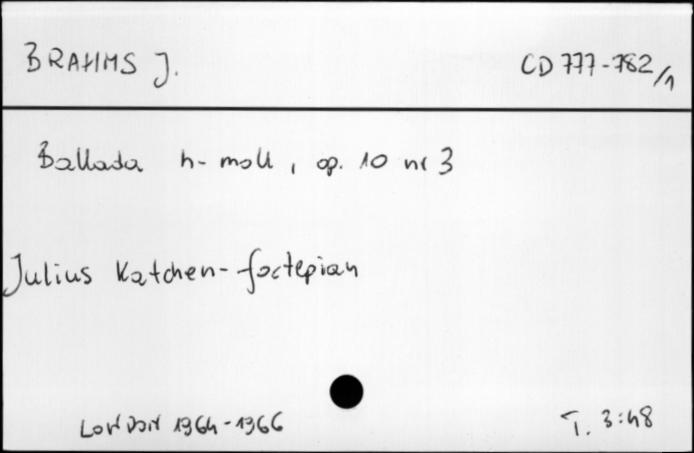 BRAHMS J. CD 777-782/1
Ballada h-moll, op. 10 nr 3
Julius Katchen-fortepian
London 1964-1966 T. 3:48